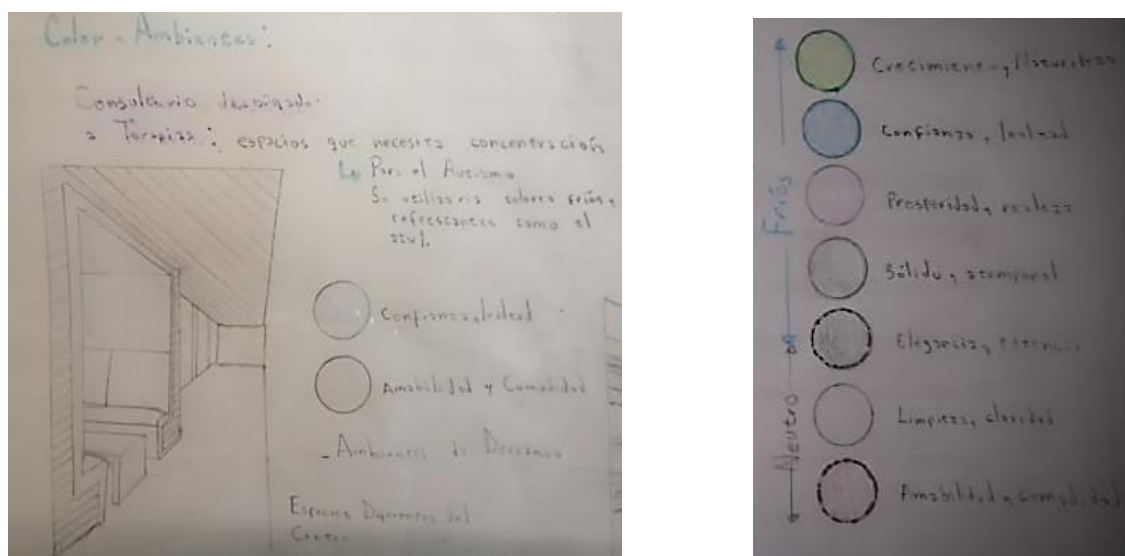 Color - Ambientes:
Consultorio designado
a Terapias: espacios que necesita concentración
Para el Autismo
Se utilizaria colores fríos,
refrescantes como el
azul.
Confianza, lealtad
Amabilidad y Comodidad
- Ambientes de Descanso
Espacios Dinamicos del
Centro
Crecimiento, Naturaleza
Confianza, lealtad
Prosperidad, realeza
Sólido, atemporal
Elegancia, potencia
Limpieza, claridad
Amabilidad, comodidad
Fríos
Neutro